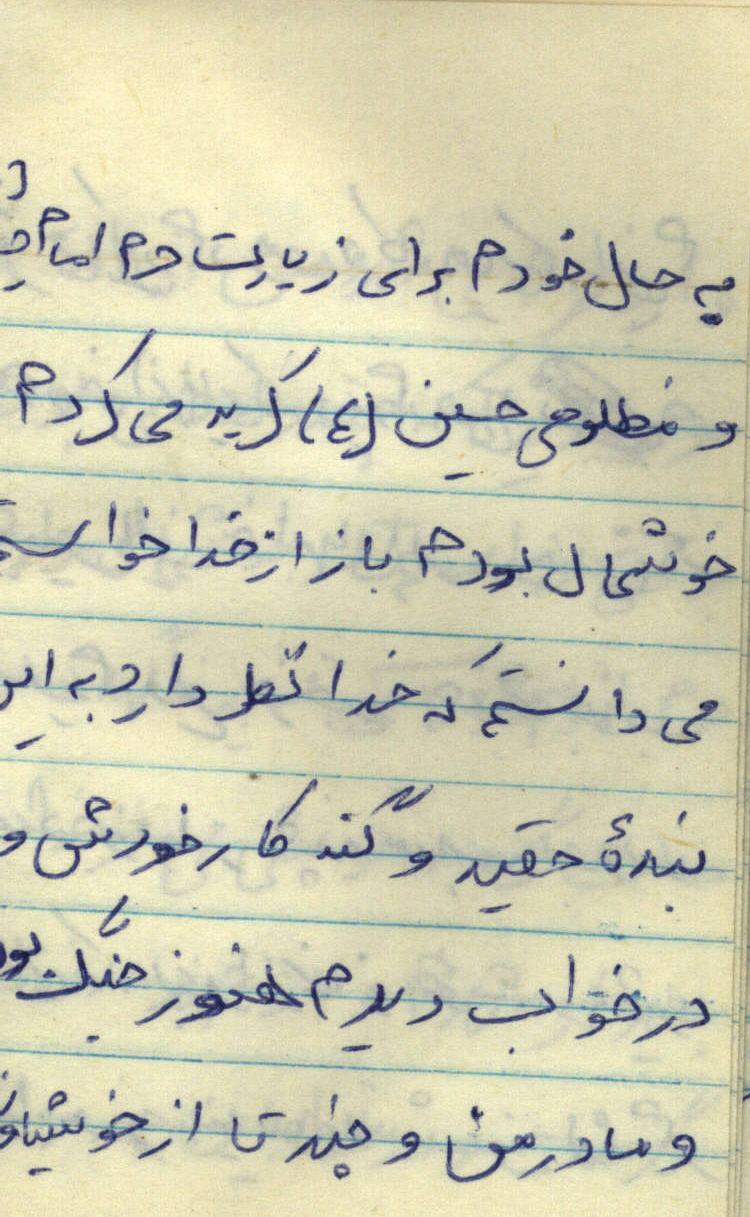 به حال خودم برای زیارت حرم امام
و مظلومی حسین (ع) گریه می کردم
خوشحال بودم باز از خدا
می دانستم که خدا نظر دارد به
بندهٔ حقیر و گنه کار خودش و
در خواب دیدم هنوز جنگ
و مادر من و چند تا از